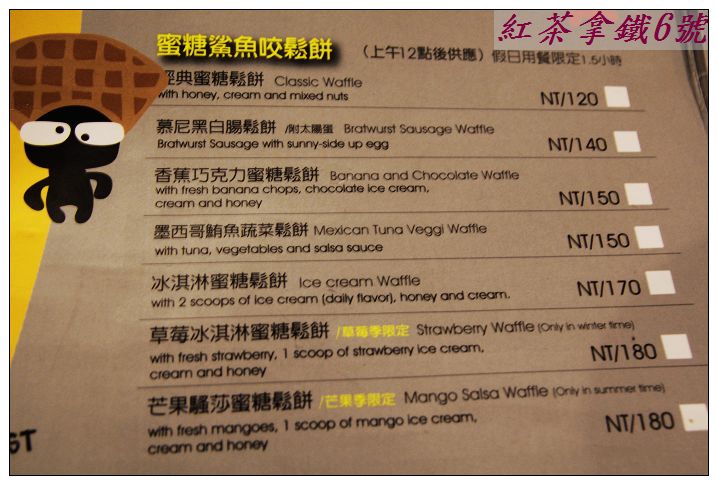 紅茶拿鐵6號
蜜糖鯊魚咬鬆餅 (上午12點後供應) 假日用餐限定1.5小時
經典蜜糖鬆餅 Classic Waffle
with honey, cream and mixed nuts
NT/120
慕尼黑白腸鬆餅 /附太陽蛋 Bratwurst Sausage Waffle
Bratwurst Sausage with sunny-side up egg
NT/140
香蕉巧克力蜜糖鬆餅 Banana and Chocolate Waffle
with fresh banana chops, chocolate ice cream,
cream and honey
NT/150
墨西哥鮪魚蔬菜鬆餅 Mexican Tuna Veggi Waffle
with tuna, vegetables and salsa sauce
NT/150
冰淇淋蜜糖鬆餅 Ice cream Waffle
with 2 scoops of ice cream (daily flavor), honey and cream.
NT/170
草莓冰淇淋蜜糖鬆餅 /草莓季限定 Strawberry Waffle (Only in winter time)
with fresh strawberry, 1 scoop of strawberry ice cream,
cream and honey
NT/180
芒果騷莎蜜糖鬆餅 /芒果季限定 Mango Salsa Waffle (Only in summer time)
with fresh mangoes, 1 scoop of mango ice cream,
cream and honey
NT/180